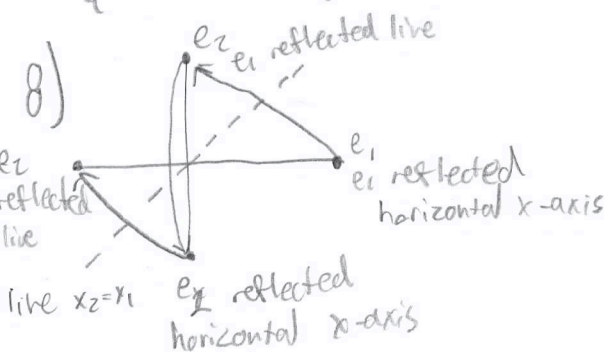 8)
e2
e1 reflected line
e1
e1 reflected
horizontal x-axis
e2
reflected
line
line x2=x1
e2 reflected
horizontal x-axis